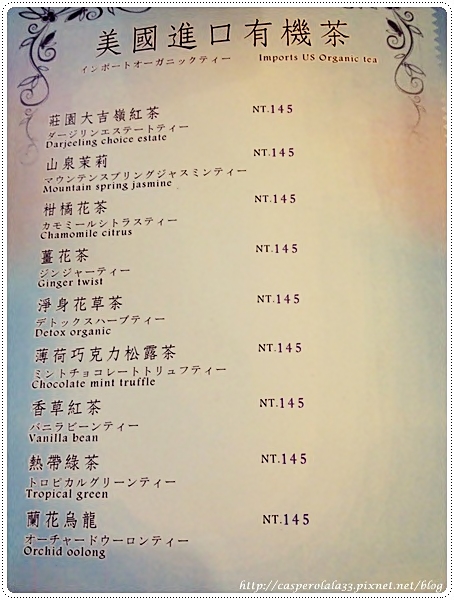 美國進口有機茶
インポートオーガニックティー Imports US Organic tea
莊園大吉嶺紅茶 NT.145
ダージリンエステートティー
Darjeeling choice estate
山泉茉莉 NT.145
マウンテンスプリングジャスミンティー
Mountain spring jasmine
柑橘花茶 NT.145
カモミールシトラスティー
Chamomile citrus
薑花茶 NT.145
ジンジャーティー
Ginger twist
淨身花草茶 NT.145
デトックスハーブティー
Detox organic
薄荷巧克力松露茶 NT.145
ミントチョコレートトリュフティー
Chocolate mint truffle
香草紅茶 NT.145
バニラビーンティー
Vanilla bean
熱帶綠茶 NT.145
トロピカルグリーンティー
Tropical green
蘭花烏龍 NT.145
オーチャードウーロンティー
Orchid oolong
http://casperolala33.pixnet.net/blog